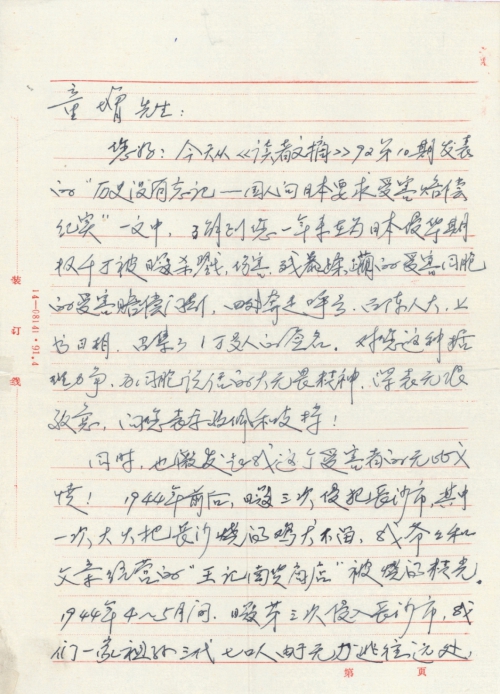 童增先生：
您好！今天从《读者文摘》92第10期发表
的“历史没有忘记—国人向日本要求受害赔偿
纪实”一文中，了解到您一年来在为日本侵华期
被日寇杀戮、伤害、的受害同胞
的受害赔偿，四处奔走呼吁，人大，上
书日相，召集了1万多人的签名。对您这种据
理力争，为同胞说话的大无畏精神，深表无限
敬意，向您表示致佩和支持！
同时，也激发起我这个受害者的无比义
愤！1944年前后，日寇三次侵犯长沙市，其中
一次大火把长沙烧的鸡犬不留，我爷爷和
父亲经营的“王记南货商店”被烧的精光。
1944年4～5月间，日寇第三次侵入长沙市，我
们一家祖孙三代七口人由于无力逃往远处，
装订线
14—08141·91.4
第 页